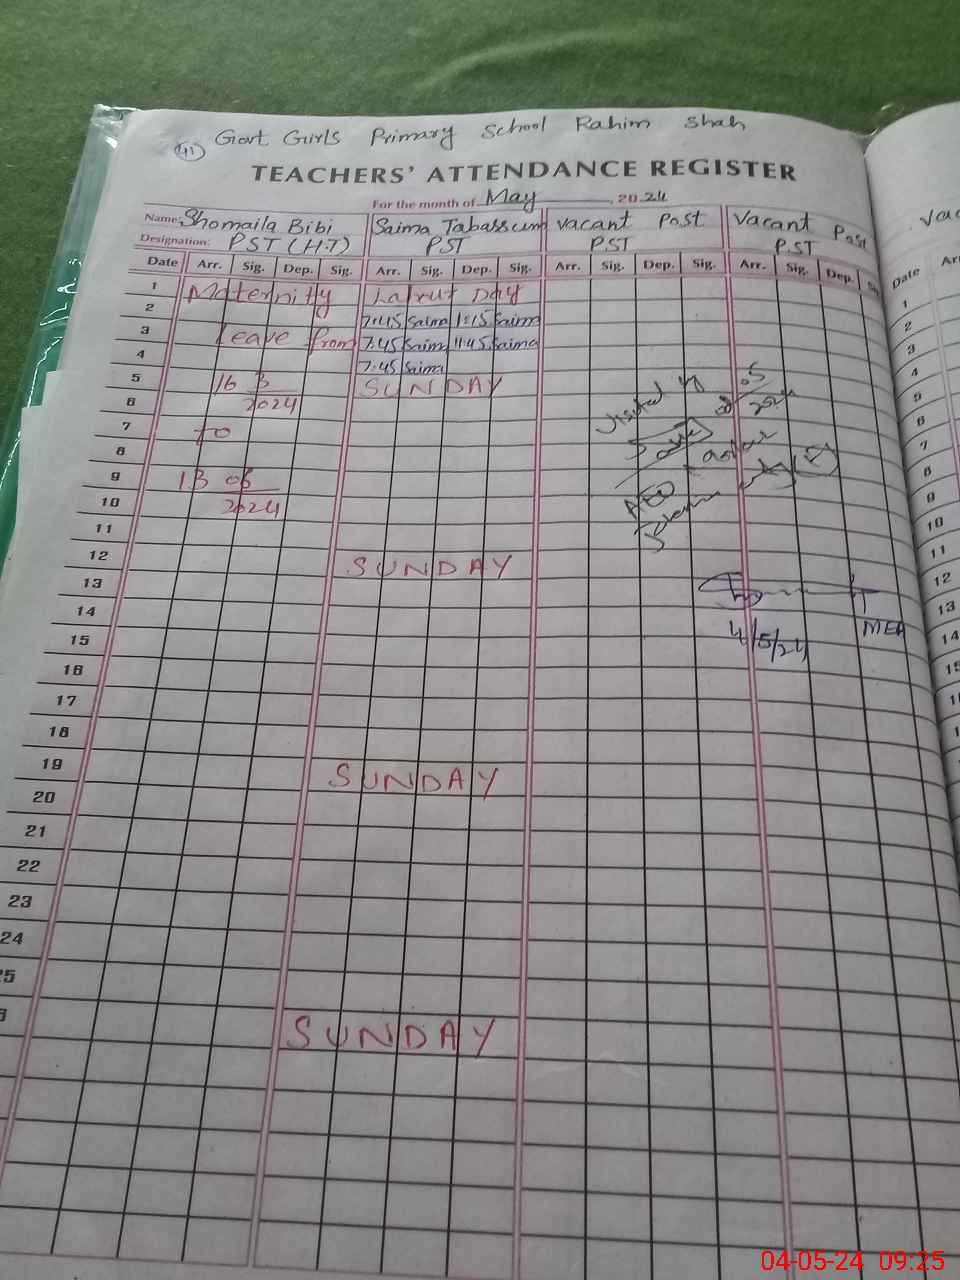 Govt Girls Primary School Rahim Shah
41
TEACHERS' ATTENDANCE REGISTER
For the month of May, 2024
Name: Shomaila Bibi Saima Tabassum Vacant Post Vacant Post
Designation: PST (H.T) PST PST PST
Date Arr. Sig. Dep. Sig. Arr. Sig. Dep. Sig. Arr. Sig. Dep. Sig. Arr. Sig. Dep. Date
1 Maternity Day
2 7:45 Saima 1:15 Saima
3 Leave from 7:45 Saim 11:45 Saima
4 7:45 Saima
5 16 3 SUNDAY
6 2024
7 to
8
9 13 06
10 2024
11
12 SUNDAY
13
14
15
16
17
18
19 SUNDAY
20
21
22
23
24
25
SUNDAY
Visited by
05
2024
AEO
4/5/24
MEA
1
2
3
4
5
6
7
8
9
10
11
12
13
14
04-05-24 09:25